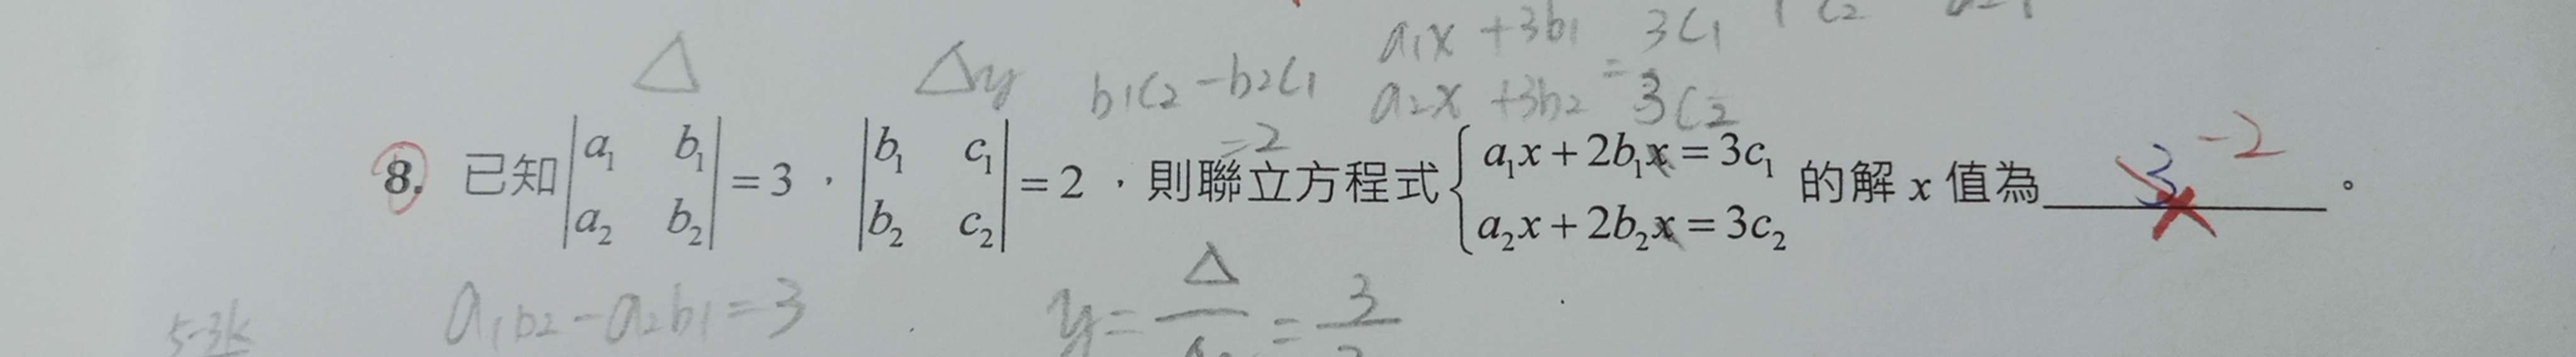 a₁x + 3b₁ 3c₁
Δ Δy b₁c₂ - b₂c₁ a₂x + 3b₂ = 3c₂
= 2
8. 已知 |a₁ b₁; a₂ b₂| = 3，|b₁ c₁; b₂ c₂| = 2，則聯立方程式 { a₁x + 2b₁x = 3c₁; a₂x + 2b₂x = 3c₂ 的解 x 值為 3 -2 。
a₁b₂ - a₂b₁ = 3 y = Δ = 3
5-3k